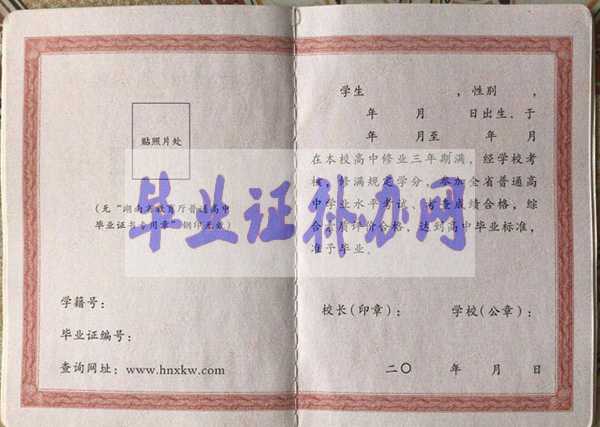 贴照片处
(无“湖南省教育厅普通高中
毕业证书专用章”钢印无效)
学籍号：
毕业证编号：
查询网址：www.hnxkw.com
学生　　　，性别　，
年　月　日出生，于
年　月至　年　月
在本校高中修业三年期满，经学校考
核，修满规定学分，参加全省普通高
中学业水平考试、考查成绩合格，综
合素质评价合格，达到高中毕业标准，
准予毕业。
校长(印章)：　学校(公章)：
二〇　年　月　日
毕业证补办网